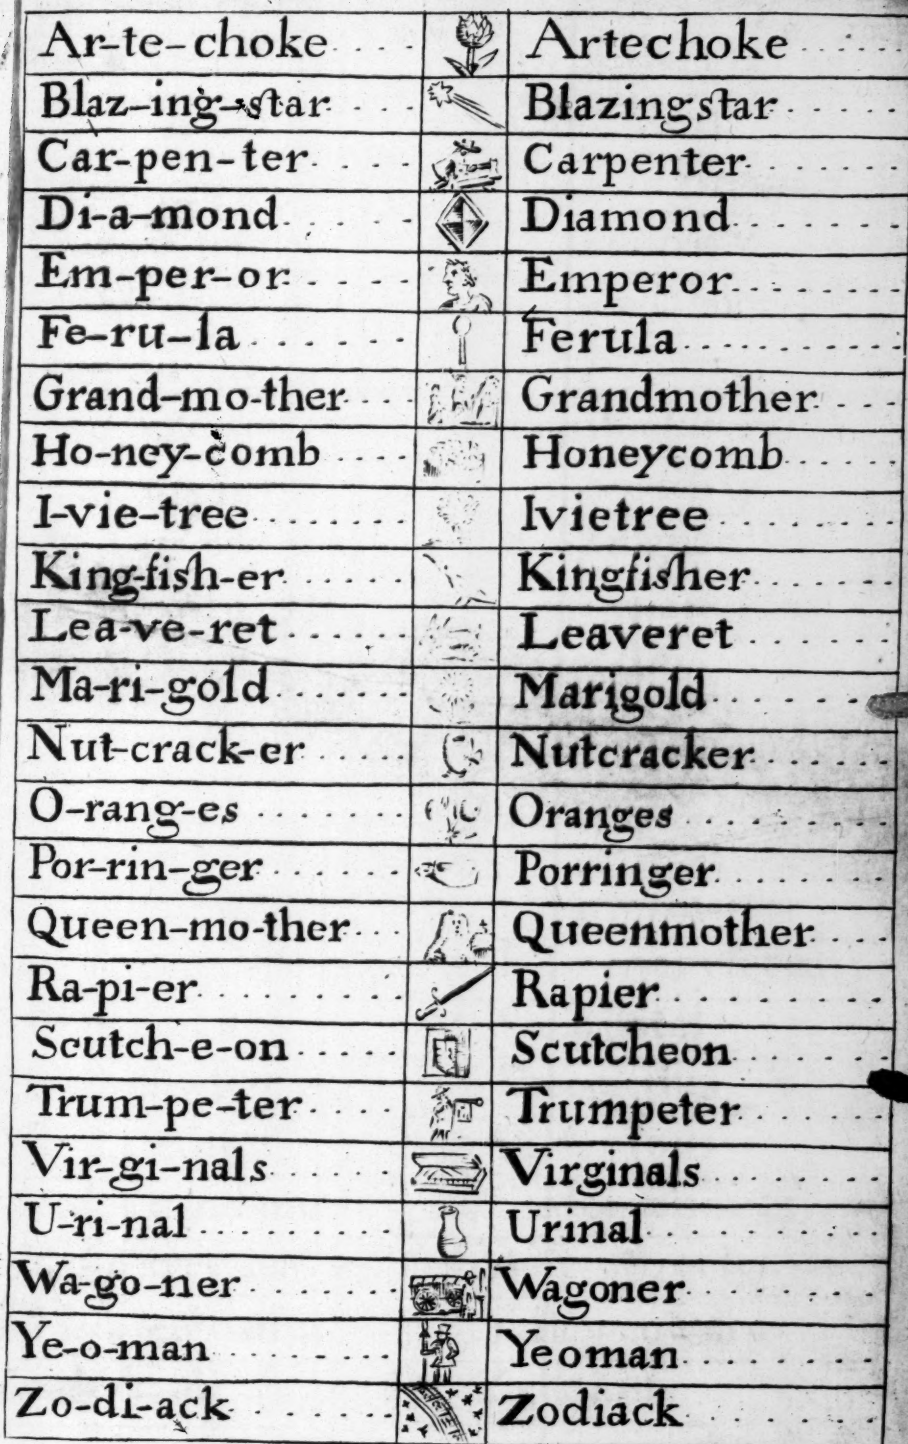 Ar-te-choke Artechoke
Blaz-ing-star Blazingstar
Car-pen-ter Carpenter
Di-a-mond Diamond
Em-per-or Emperor
Fe-ru-la Ferula
Grand-mo-ther Grandmother
Ho-ney-comb Honeycomb
I-vie-tree Ivietree
King-fish-er Kingfisher
Lea-ve-ret Leaveret
Ma-ri-gold Marigold
Nut-crack-er Nutcracker
O-rang-es Oranges
Por-rin-ger Porringer
Queen-mo-ther Queenmother
Ra-pi-er Rapier
Scutch-e-on Scutcheon
Trum-pe-ter Trumpeter
Vir-gi-nals Virginals
U-ri-nal Urinal
Wa-go-ner Wagoner
Ye-o-man Yeoman
Zo-di-ack Zodiack